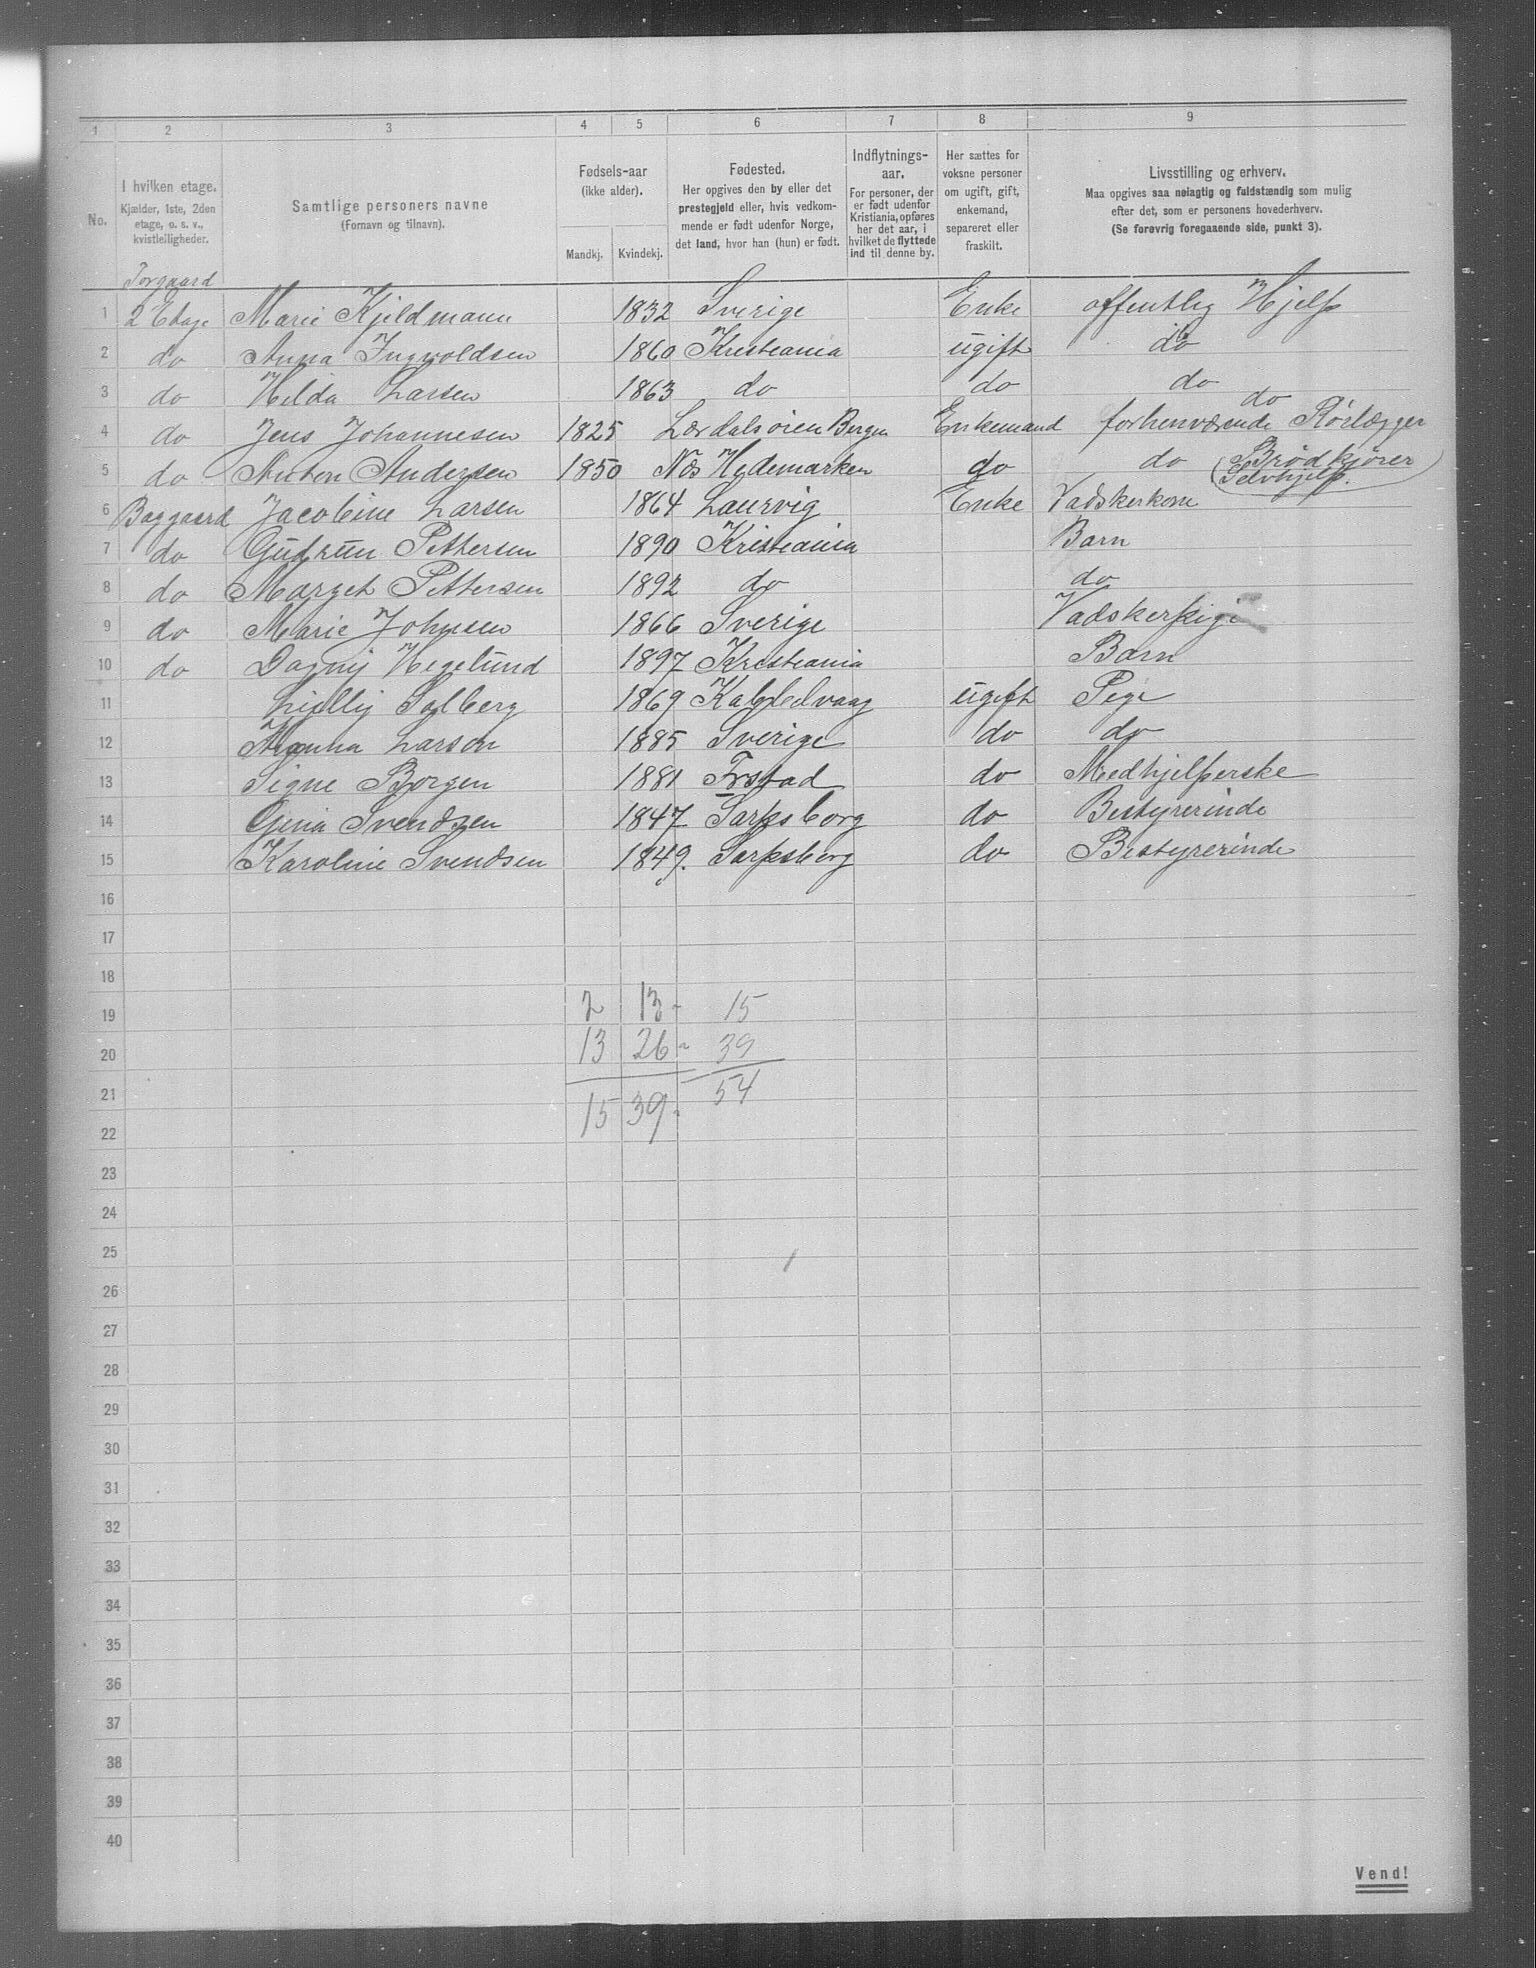 1 2 3 4 5 6 7 8 9
No.
I hvilken etage.
Kjælder, 1ste, 2den
etage, o. s. v.,
kvistleiligheder.
Samtlige personers navne
(Fornavn og tilnavn).
Fødsels-aar
(ikke alder).
Mandkj. Kvindekj.
Fødested.
Her opgives den by eller det
prestegjeld eller, hvis vedkom-
mende er født udenfor Norge,
det land, hvor han (hun) er født.
Indflytnings-
aar.
For personer, der
er født udenfor
Kristiania, opføres
her det aar, i
hvilket de flyttede
ind til denne by.
Her sættes for
voksne personer
om ugift, gift,
enkemand,
separeret eller
fraskilt.
Livsstilling og erhverv.
Maa opgives saa nøiagtig og fuldstændig som mulig
efter det, som er personens hovederhverv.
(Se forøvrig foregaaende side, punkt 3).
Forgaard
1 2 Etage Marie Kjeldmann 1832 Sverige Enke offentlig Hjelp
2 do Anna Ingvoldsen 1860 Kristiania ugift do
3 do Hilda Larsen 1863 do do do
do
4 do Jens Johannesen 1825 Lærdalsøien Bergen Enkemand forhenværende Rørlægger
5 do Anton Andersen 1850 Næs Hedemarken do do Brødkjører
Selvhjelp.
6 Baggaard Jacobine Larsen 1864 Laurvig Enke Vadskerkone
7 do Gudrun Pettersen 1890 Kristiania Barn
8 do Marget Pettersen 1892 do do
9 do Marie Johnsen 1866 Sverige Vadskerpige
10 do Dagny Hegelund 1897 Kristiania Barn
11 Lielly Solberg 1869 ugift Pige
12 Larson 1885 Sverige do do
13 Signe Borgen 1881 Frstad do Medhjelperske
14 Gina Svendsen 1847 Sarpsborg do Bestyrerinde
15 Karoline Svendsen 1849. Sarpsborg do Bestyrerinde
16
17
18
19 2 13 - 15
20 13 26 - 39
21 15 39 - 54
22
23
24
25
26
27
28
29
30
31
32
33
34
35
36
37
38
39
40
Vend!